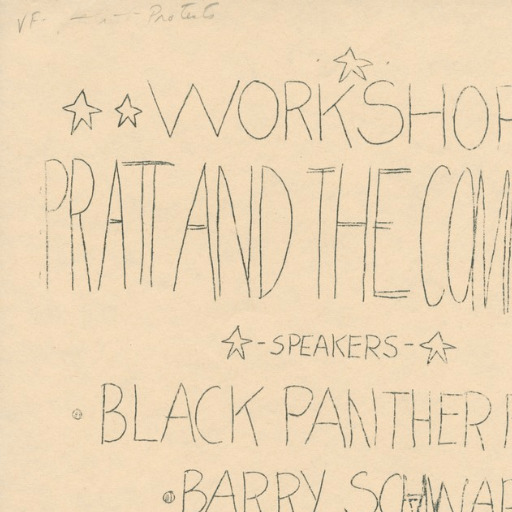 VF- Protests
WORKSHOP
PRATT AND THE COM
-SPEAKERS-
BLACK PANTHER
BARRY SCHWAR